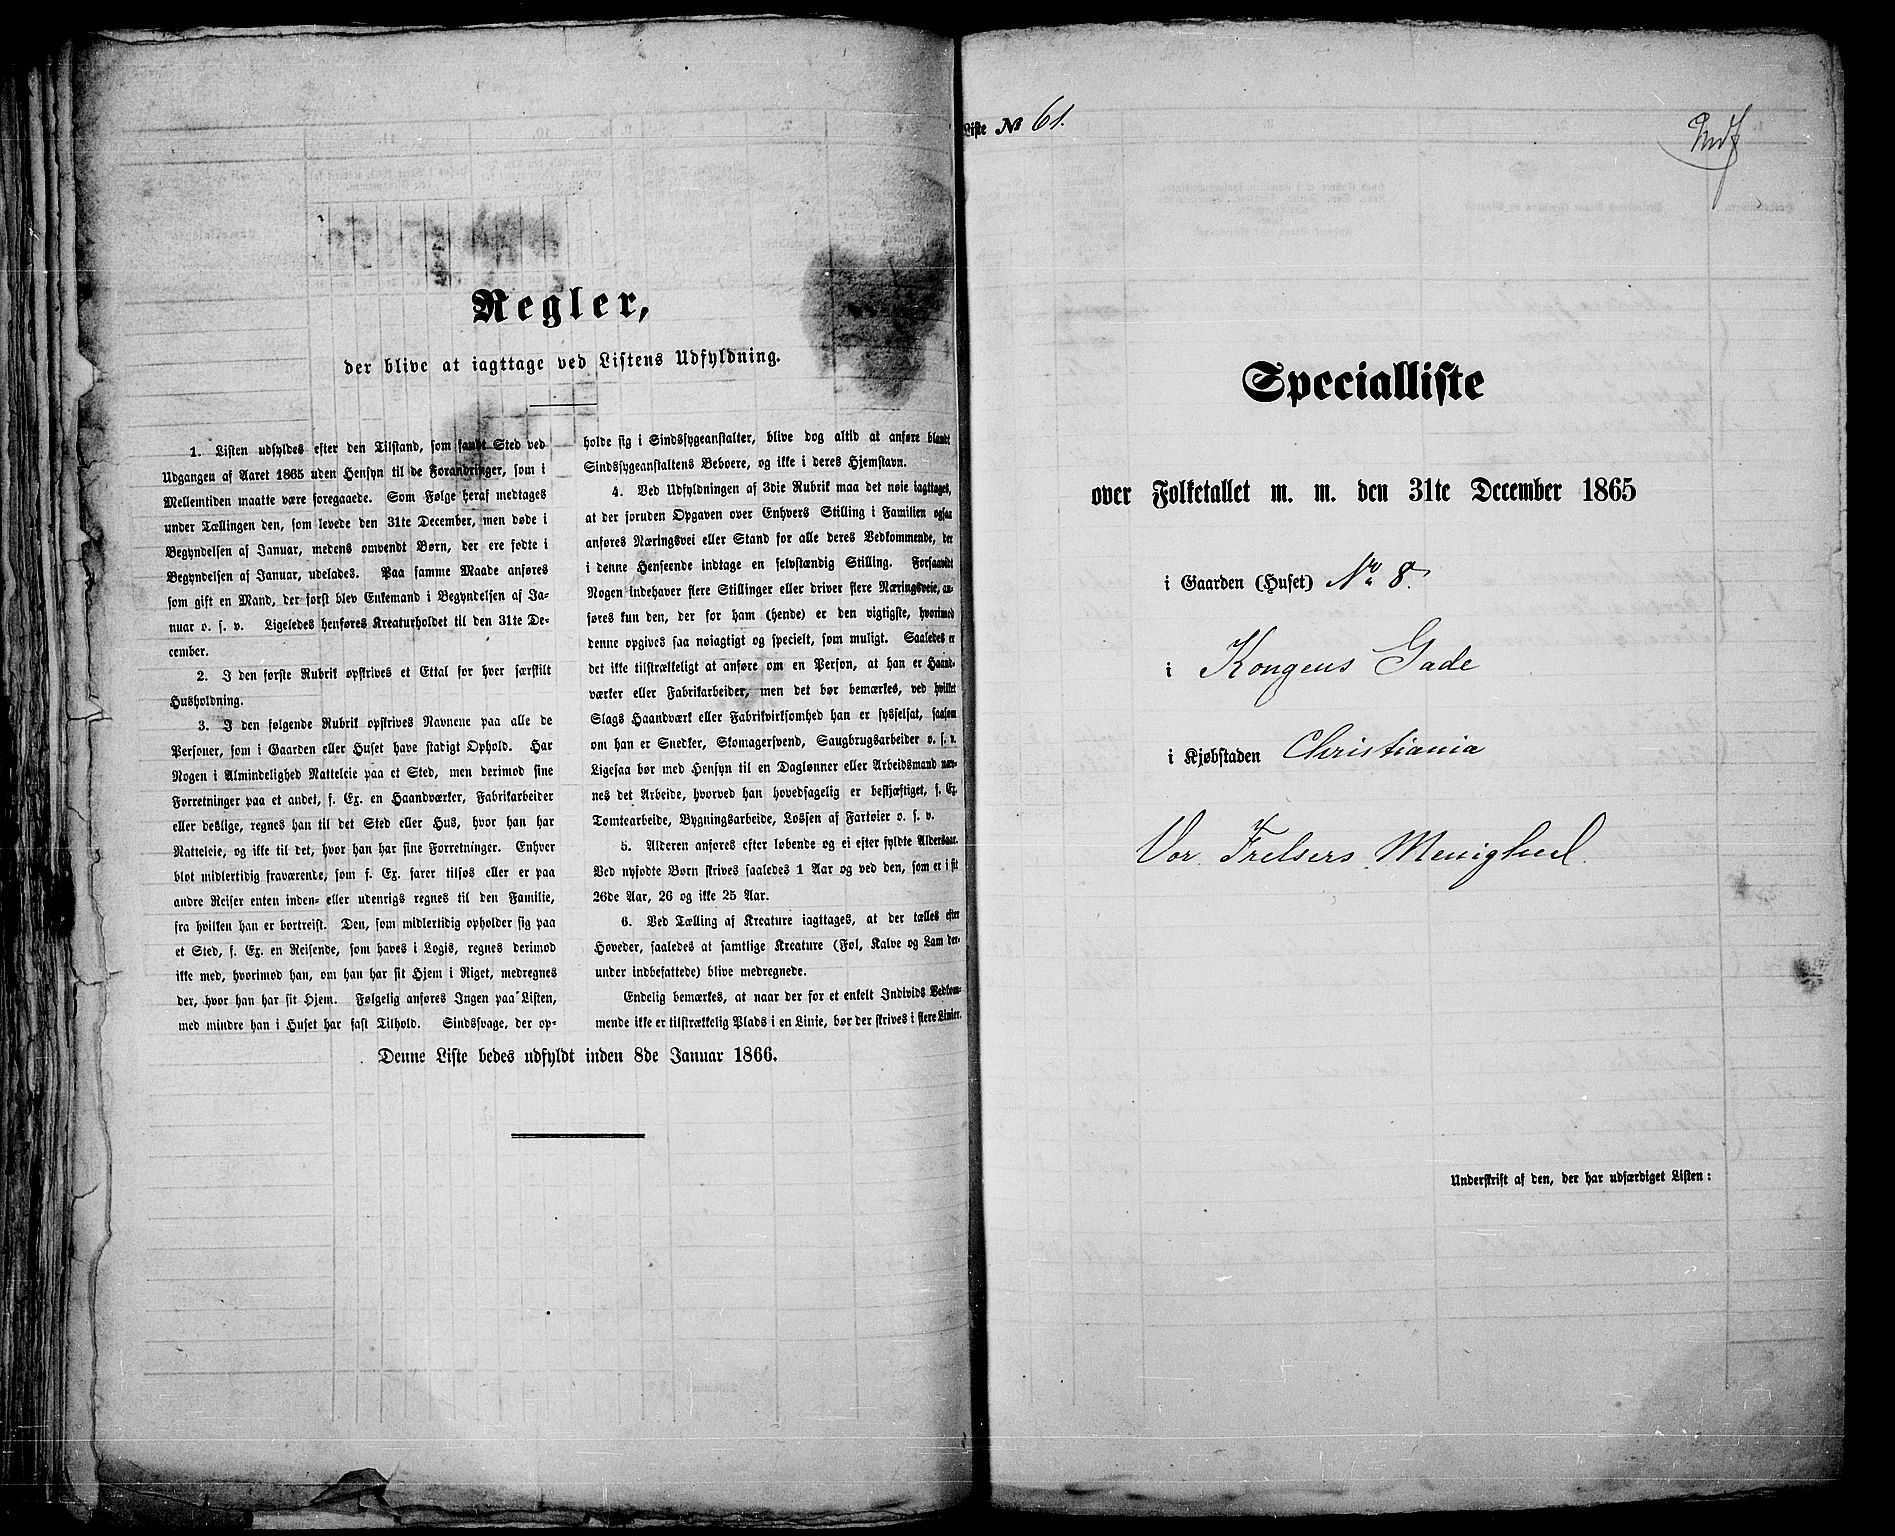 Regler,
der blive at iagttage ved Listens Udfyldning.
1. Listen udfyldes efter den Tilstand, som fandt Sted ved
Udgangen af Aaret 1865 uden Hensyn til de Forandringer, som i
Mellemtiden maatte være foregaaede. Som Følge heraf medtages
under Tællingen den, som levede den 31te December, men døde i
Begyndelsen af Januar, medens omvendt Børn, der ere fødte i
Begyndelsen af Januar, udelades. Paa samme Maade anføres
som gift en Mand, der først blev Enkemand i Begyndelsen af Ja-
nuar o. s. v. Ligeledes henføres Kreaturholdet til den 31te De-
cember.
2. I den første Rubrik opskrives et Ettal for hver særskilt
Husholdning.
3. I den følgende Rubrik opskrives Navnene paa alle de
Personer, som i Gaarden eller Huset have stadigt Ophold. Har
Nogen i Almindelighed Natteleie paa et Sted, men derimod sine
Forretninger paa et andet, f. Ex. en Haandværker, Fabrikarbeider
eller deslige, regnes han til det Sted eller Hus, hvor han har
Natteleie, og ikke til det, hvor han har sine Forretninger. Enhver
blot midlertidig fraværende, som f. Ex. farer tilsøs eller er paa
andre Reiser enten inden- eller udenrigs regnes til den Familie,
fra hvilken han er bortreist. Den, som midlertidig opholder sig paa
et Sted, f. Ex. en Reisende, som haves i Logis, regnes derimod
ikke med, hvorimod han, om han har sit Hjem i Riget, medregnes
der, hvor han har sit Hjem. Følgelig anføres Ingen paa Listen,
med mindre han i Huset har fast Tilhold. Sindssvage, der op-
holde sig i Sindssygeanstalter, blive dog altid at anføre blandt
Sindssygeanstaltens Beboere, og ikke i deres Hjemstavn.
4. Ved Udfyldningen af 3die Rubrik maa det nøie iagttages,
at der foruden Opgaven over Enhvers Stilling i Familien ogsaa
anføres Næringsvei eller Stand for alle deres Vedkommende, der
i denne Henseende indtage en selvstændig Stilling. Forsaavidt
Nogen indehaver flere Stillinger eller driver flere Næringsveie, an-
føres kun den, der for ham (hende) er den vigtigste, hvorimod
denne opgives saa nøiagtigt og specielt, som muligt. Saaledes er
det ikke tilstrækkeligt at anføre om en Person, at han er Haand-
værker eller Fabrikarbeider, men det bør bemærkes, ved hvilket
Slags Haandværk eller Fabrikvirksomhed han er sysselsat, saasom
om han er Snedker, Skomagersvend, Saugbrugsarbeider o. s. v.
Ligesaa bør med Hensyn til en Daglønner eller Arbeidsmand næv-
nes det Arbeide, hvorved han hovedsagelig er beskjæftiget, f. Ex.
Tomtearbeide, Bygningsarbeide, Lossen af Fartøier o. s. v.
5. Alderen anføres efter løbende og ei efter fyldte Aldersaar.
Ved nyfødte Børn skrives saaledes 1 Aar og ved den, som er i sit
26de Aar, 26 og ikke 25 Aar.
6. Ved Tælling af Kreature iagttages, at der tælles efter
Hoveder, saaledes at samtlige Kreature (Føl, Kalve og Lam der-
under indbefattede) blive medregnede.
Endelig bemærkes, at naar der for et enkelt Individs Vedkom-
mende ikke er tilstrækkelig Plads i en Linie, bør der skrives i flere Linier.
Denne Liste bedes udfyldt inden 8de Januar 1866.
Liste № 61.
Specialliste
over Folketallet m. m. den 31te December 1865
i Gaarden (Huset) No 8.
i Kongens Gade
i Kjøbstaden Christiania
Vor Frelsers Menighed.
Underskrift af den, der har udfærdiget Listen: